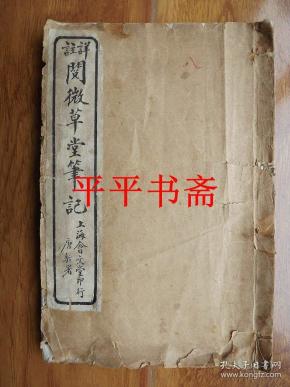 詳註
閱微草堂筆記
上海會文堂印行
唐駝署
八
平平书斋
孔夫子旧书网